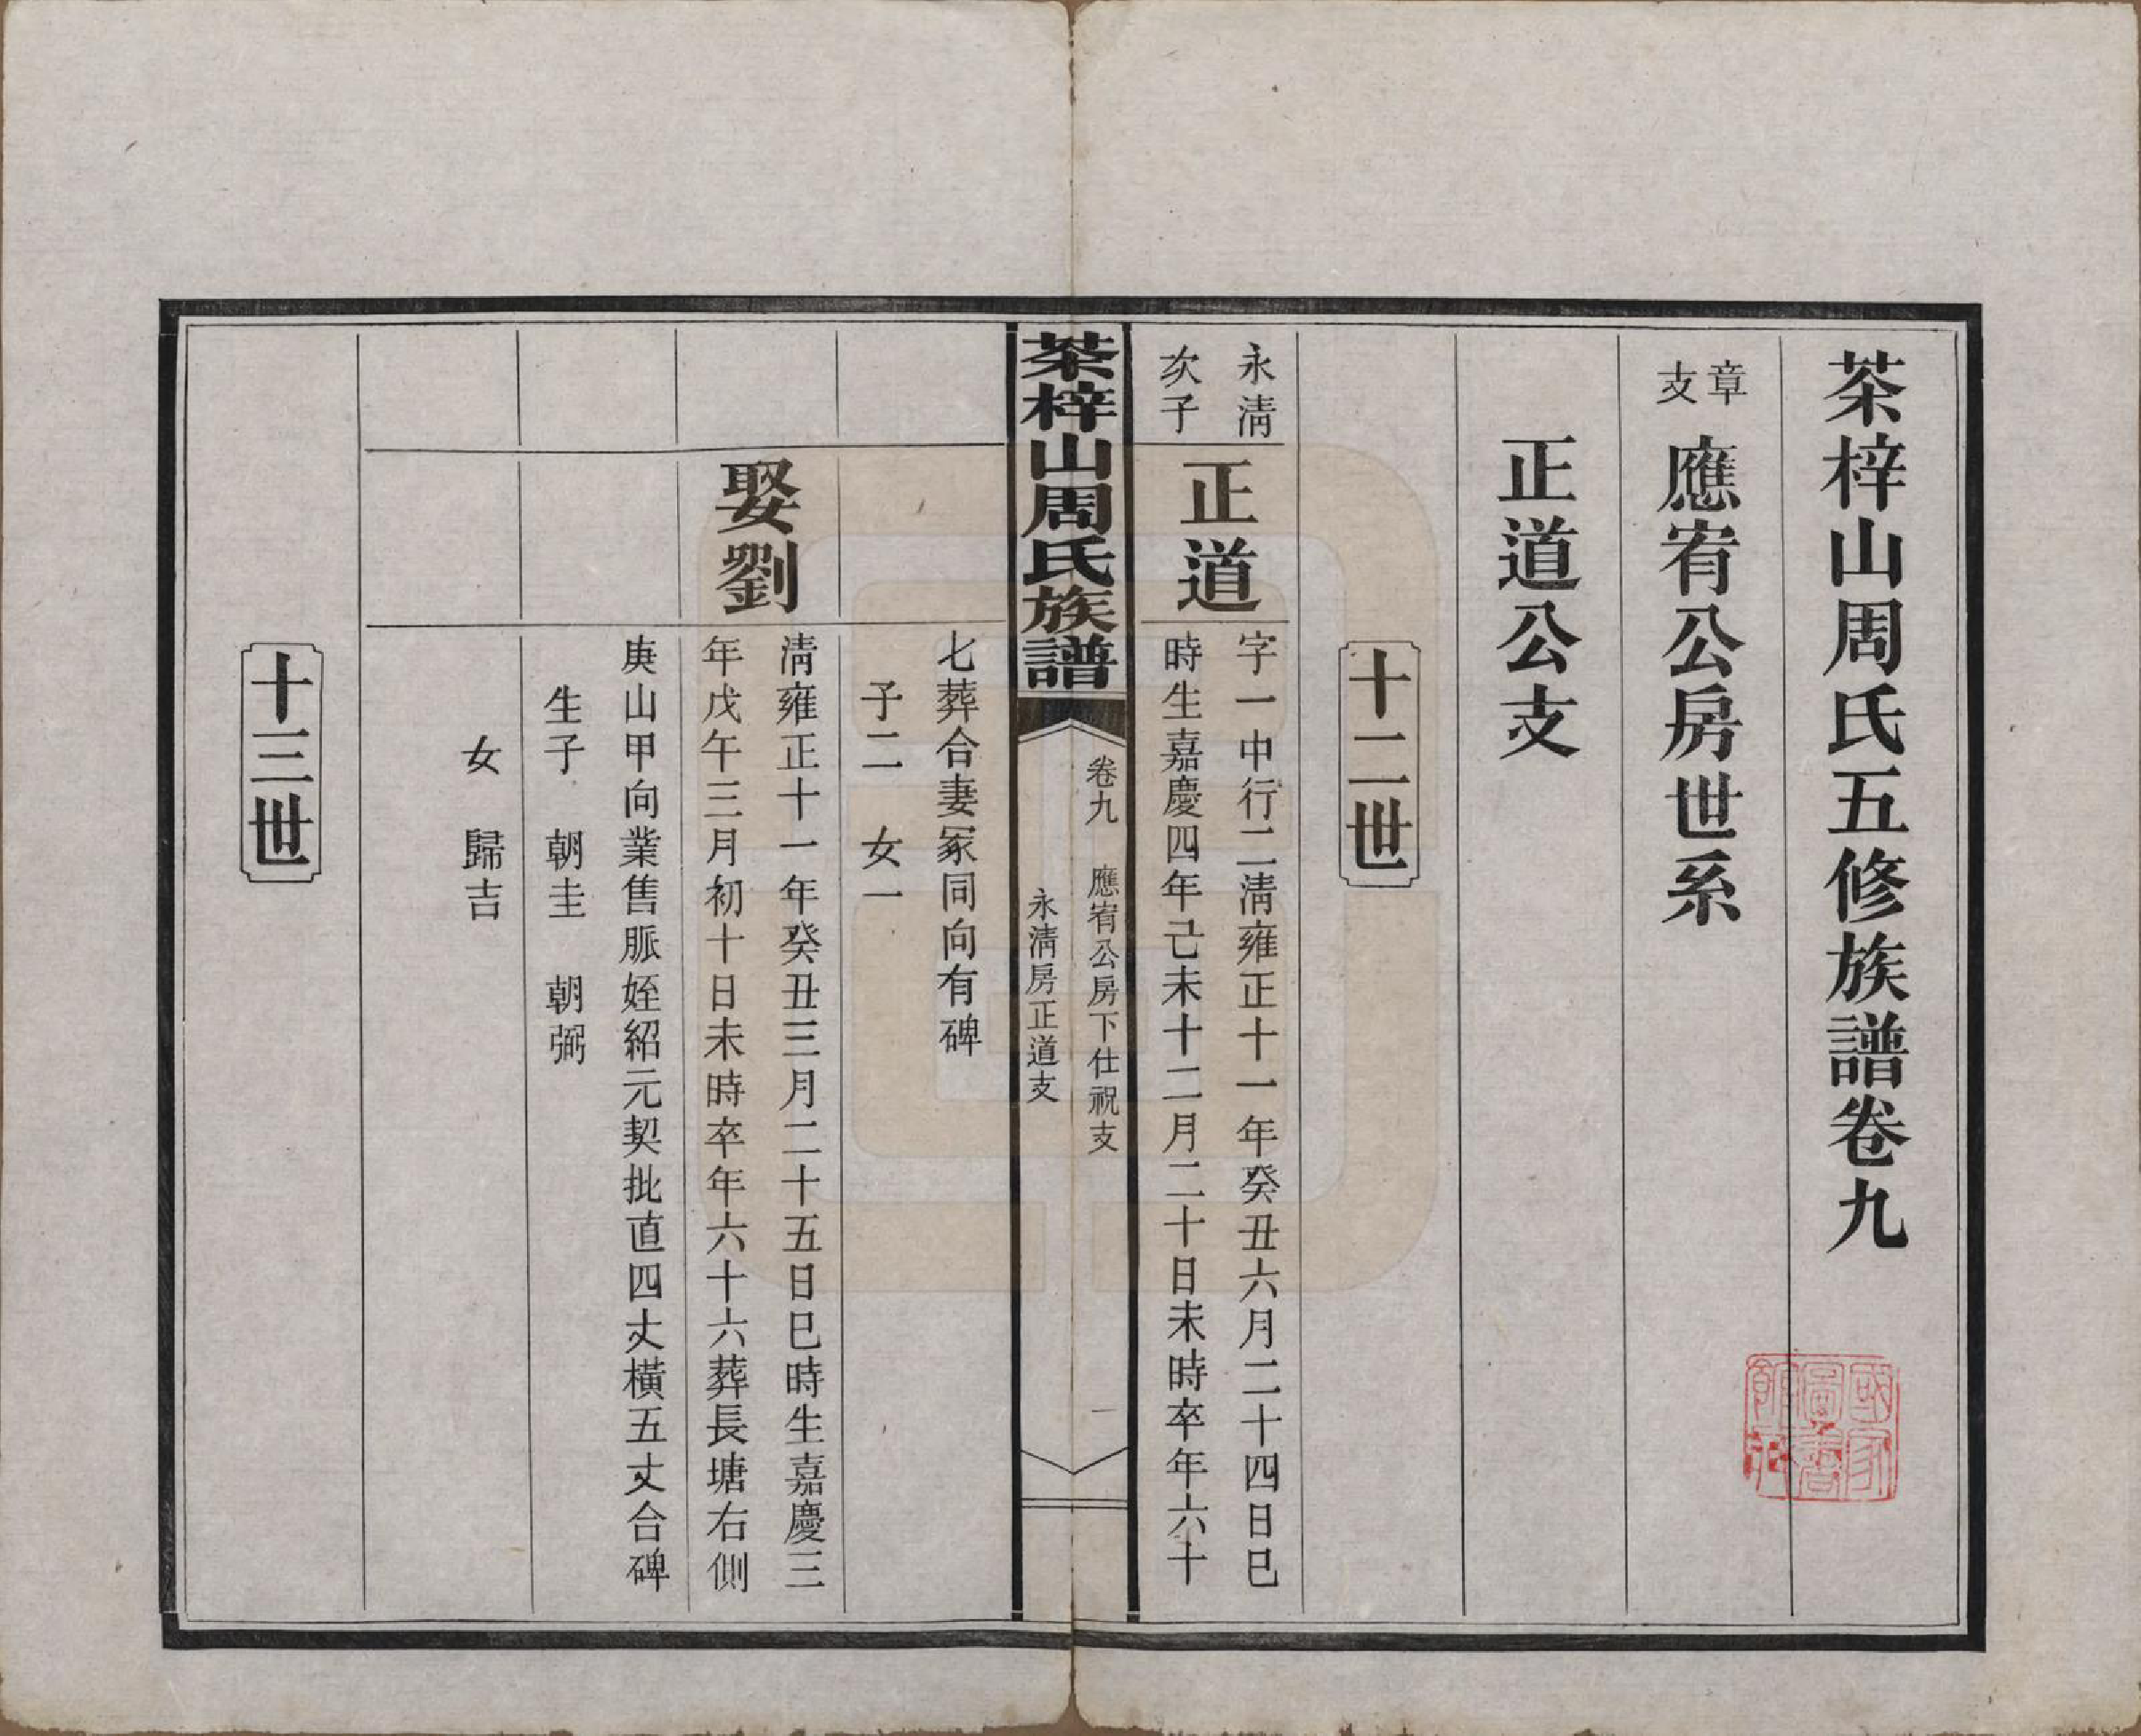 茶梓山周氏五修族譜卷九
章支 應宥公房世系
正道公支
十二世
永清次子
正道
字一中行二清雍正十一年癸丑六月二十四日巳
時生嘉慶四年己未十二月二十日未時卒年六十
茶梓山周氏族譜
卷九 應宥公房下仕祝支
永清房正道支
一
七葬合妻冢同向有碑
子二 女一
娶劉
清雍正十一年癸丑三月二十五日巳時生嘉慶三
年戊午三月初十日未時卒年六十六葬長塘右側
庚山甲向業售脈姪紹元契批直四丈橫五丈合碑
生子 朝圭 朝弼
女 歸吉
十三世
國家圖書館藏